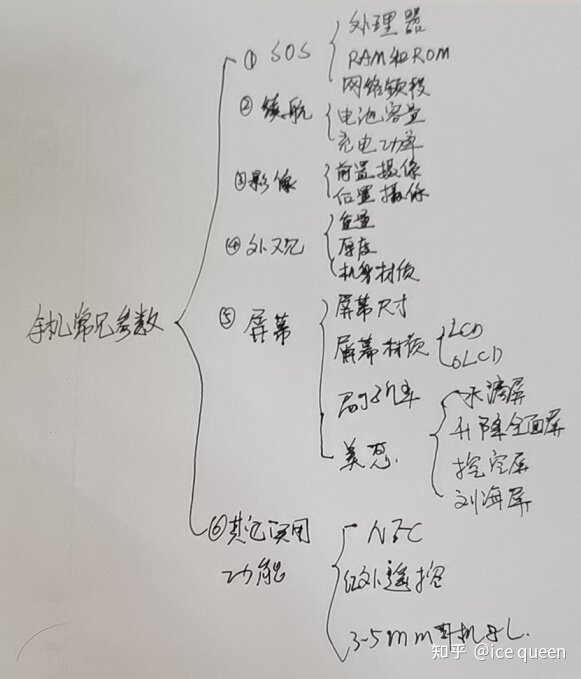 手机常见参数
① SOS
处理器
RAM和ROM
网络频段
② 续航
电池容量
充电功率
③影像
前置摄像
后置摄像
④外观
重量
厚度
机身材质
⑤ 屏幕
屏幕尺寸
屏幕材质
LCD
OLCD
刷新率
美观
水滴屏
升降全面屏
挖空屏
刘海屏
⑥其它实用
功能
NFC
红外遥控
3-5mm耳机孔.
知乎 @ice queen